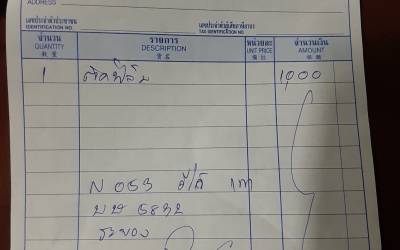 ADDRESS
เลขประจำตัวประชาชน
IDENTIFICATION NO.
เลขประจำตัวผู้เสียภาษีอากร
TAX IDENTIFICATION NO.
จำนวน
QUANTITY
數量
รายการ
DESCRIPTION
貨名
หน่วยละ
UNIT PRICE
價計
จำนวนเงิน
AMOUNT
1 ติดฟิล์ม 1,000
6832
ระยอง